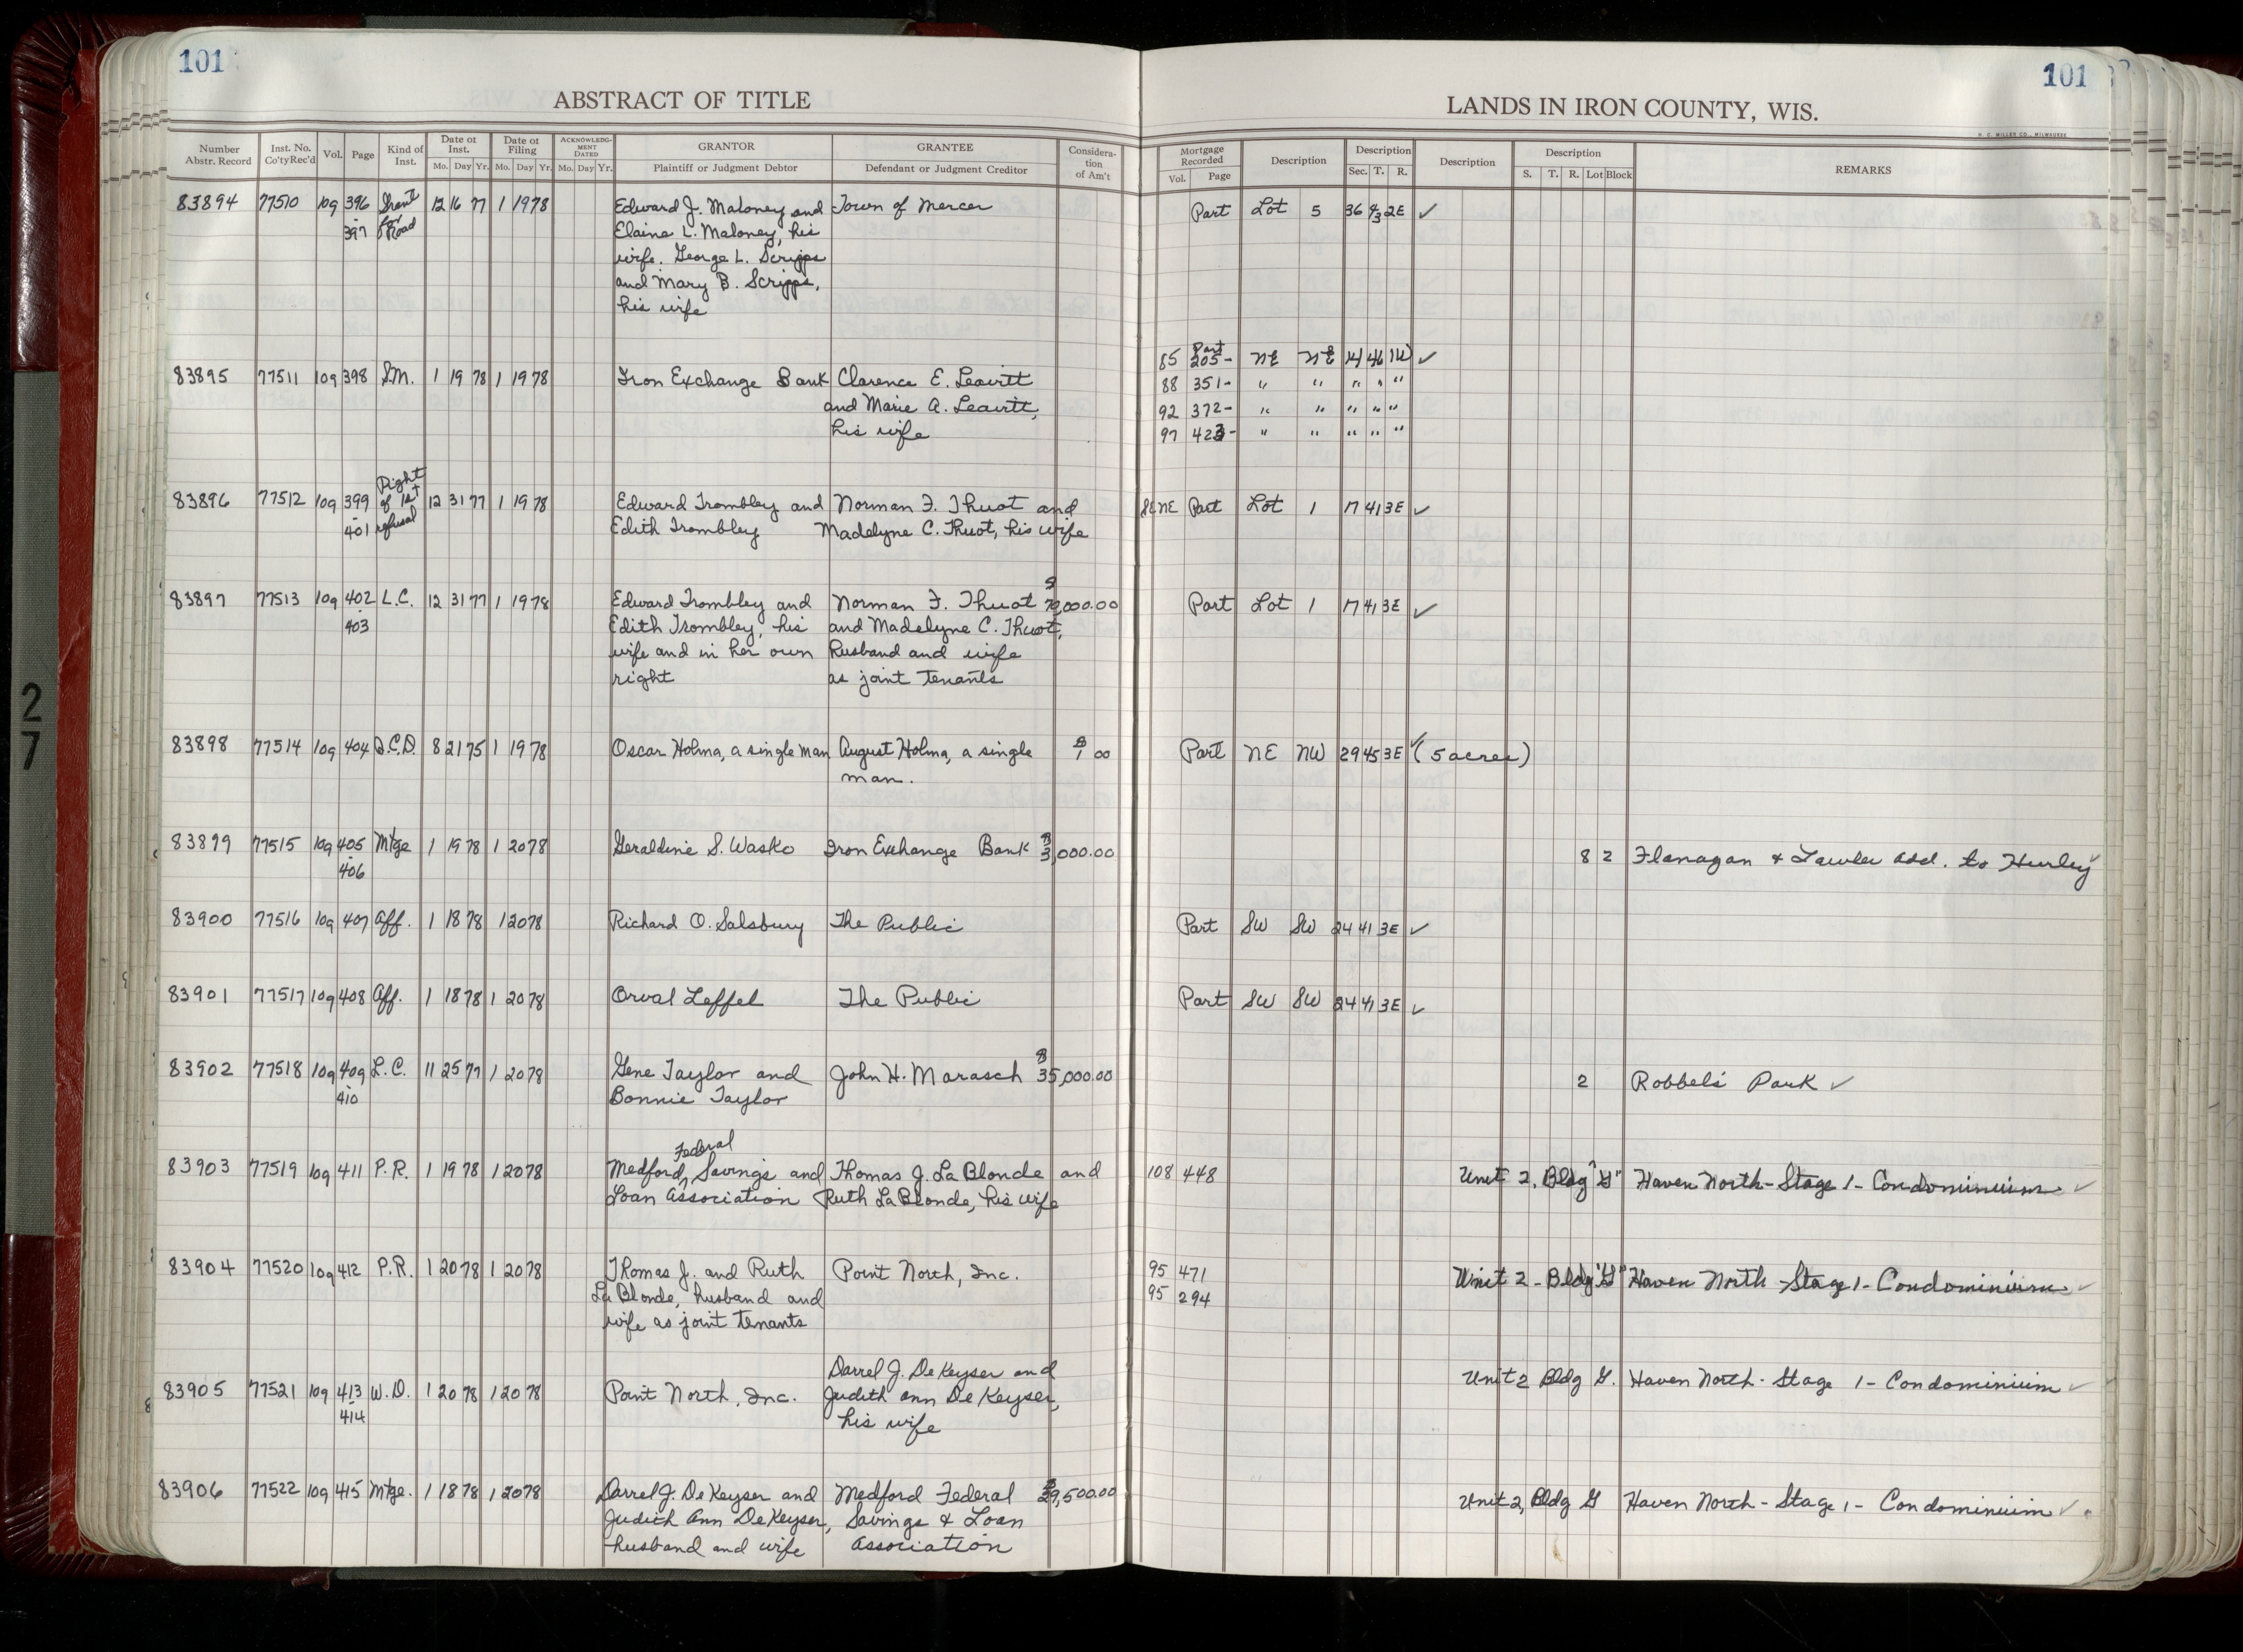 101
101
ABSTRACT OF TITLE
LANDS IN IRON COUNTY, WIS.
H. C. MILLER CO., MILWAUKEE
Number Abstr. Record | Inst. No. Co'ty Rec'd | Vol. | Page | Kind of Inst. | Date of Inst. Mo. Day Yr. | Date of Filing Mo. Day Yr. | ACKNOWLEDGMENT DATED Mo. Day Yr. | GRANTOR Plaintiff or Judgment Debtor | GRANTEE Defendant or Judgment Creditor | Consideration of Am't | Mortgage Recorded Vol. Page | Description | Description Sec. T. R. | Description | Description S. T. R. Lot Block | REMARKS
83894 77510 109 396 Grant 12 16 77 1 19 78 Edward J. Maloney and Town of Mercer Part Lot 5 36 43 2E ✓
- 397 for Road Elaine L. Maloney, his
wife. George L. Scripps
and Mary B. Scripps,
his wife
85 Part 205- NE NE 14 46 1W ✓
83895 77511 109 398 S.M. 1 19 78 1 19 78 Iron Exchange Bank Clarence E. Leavitt 88 351- " " " " "
and Marie A. Leavitt, 92 372- " " " " "
his wife 97 423- " " " " "
Right
83896 77512 109 399 of 1st 12 31 77 1 19 78 Edward Trombley and Norman F. Thuot and SENE Part Lot 1 17 41 3E ✓
- 401 refusal Edith Trombley Madelyne C. Thuot, his wife
83897 77513 109 402 L.C. 12 31 77 1 19 78 Edward Trombley and Norman F. Thuot $70,000.00 Part Lot 1 17 41 3E ✓
- 403 Edith Trombley, his and Madelyne C. Thuot,
wife and in her own husband and wife
right as joint tenants
83898 77514 109 404 Q.C.D. 8 21 75 1 19 78 Oscar Holma, a single man August Holma, a single $1 00 Part NE NW 29 45 3E ✓ (5 acres)
man.
83899 77515 109 405 Mtge 1 19 78 1 20 78 Geraldine S. Wasko Iron Exchange Bank $3,000.00 8 2 Flanagan & Lawler Add. to Hurley ✓
- 406
83900 77516 109 407 Aff. 1 18 78 1 20 78 Richard O. Salsbury The Public Part SW SW 24 41 3E ✓
83901 77517 109 408 Aff. 1 18 78 1 20 78 Orval Leffel The Public Part SW SW 24 41 3E ✓
83902 77518 109 409 L.C. 11 25 77 1 20 78 Gene Taylor and John H. Marasch $35,000.00 2 Robbel's Park ✓
- 410 Bonnie Taylor
Federal
83903 77519 109 411 P.R. 1 19 78 1 20 78 Medford Savings and Thomas J. La Blonde and 108 448 Unit 2, Bldg "G" Haven North-Stage 1- Condominium ✓
Loan Association Ruth La Blonde, his wife
83904 77520 109 412 P.R. 1 20 78 1 20 78 Thomas J. and Ruth Point North, Inc. 95 471 Unit 2 - Bldg "G" Haven North -Stage 1- Condominium ✓
La Blonde, husband and 95 294
wife as joint tenants
Darrel J. De Keyser and
83905 77521 109 413 W.D. 1 20 78 1 20 78 Point North, Inc. Judith Ann De Keyser, Unit 2 Bldg G. Haven North - Stage 1- Condominium ✓
- 414 his wife
83906 77522 109 415 Mtge. 1 18 78 1 20 78 Darrel J. De Keyser and Medford Federal $29,500.00 Unit 2, Bldg G Haven North - Stage 1 - Condominium ✓
Judith Ann De Keyser, Savings & Loan
husband and wife Association
27